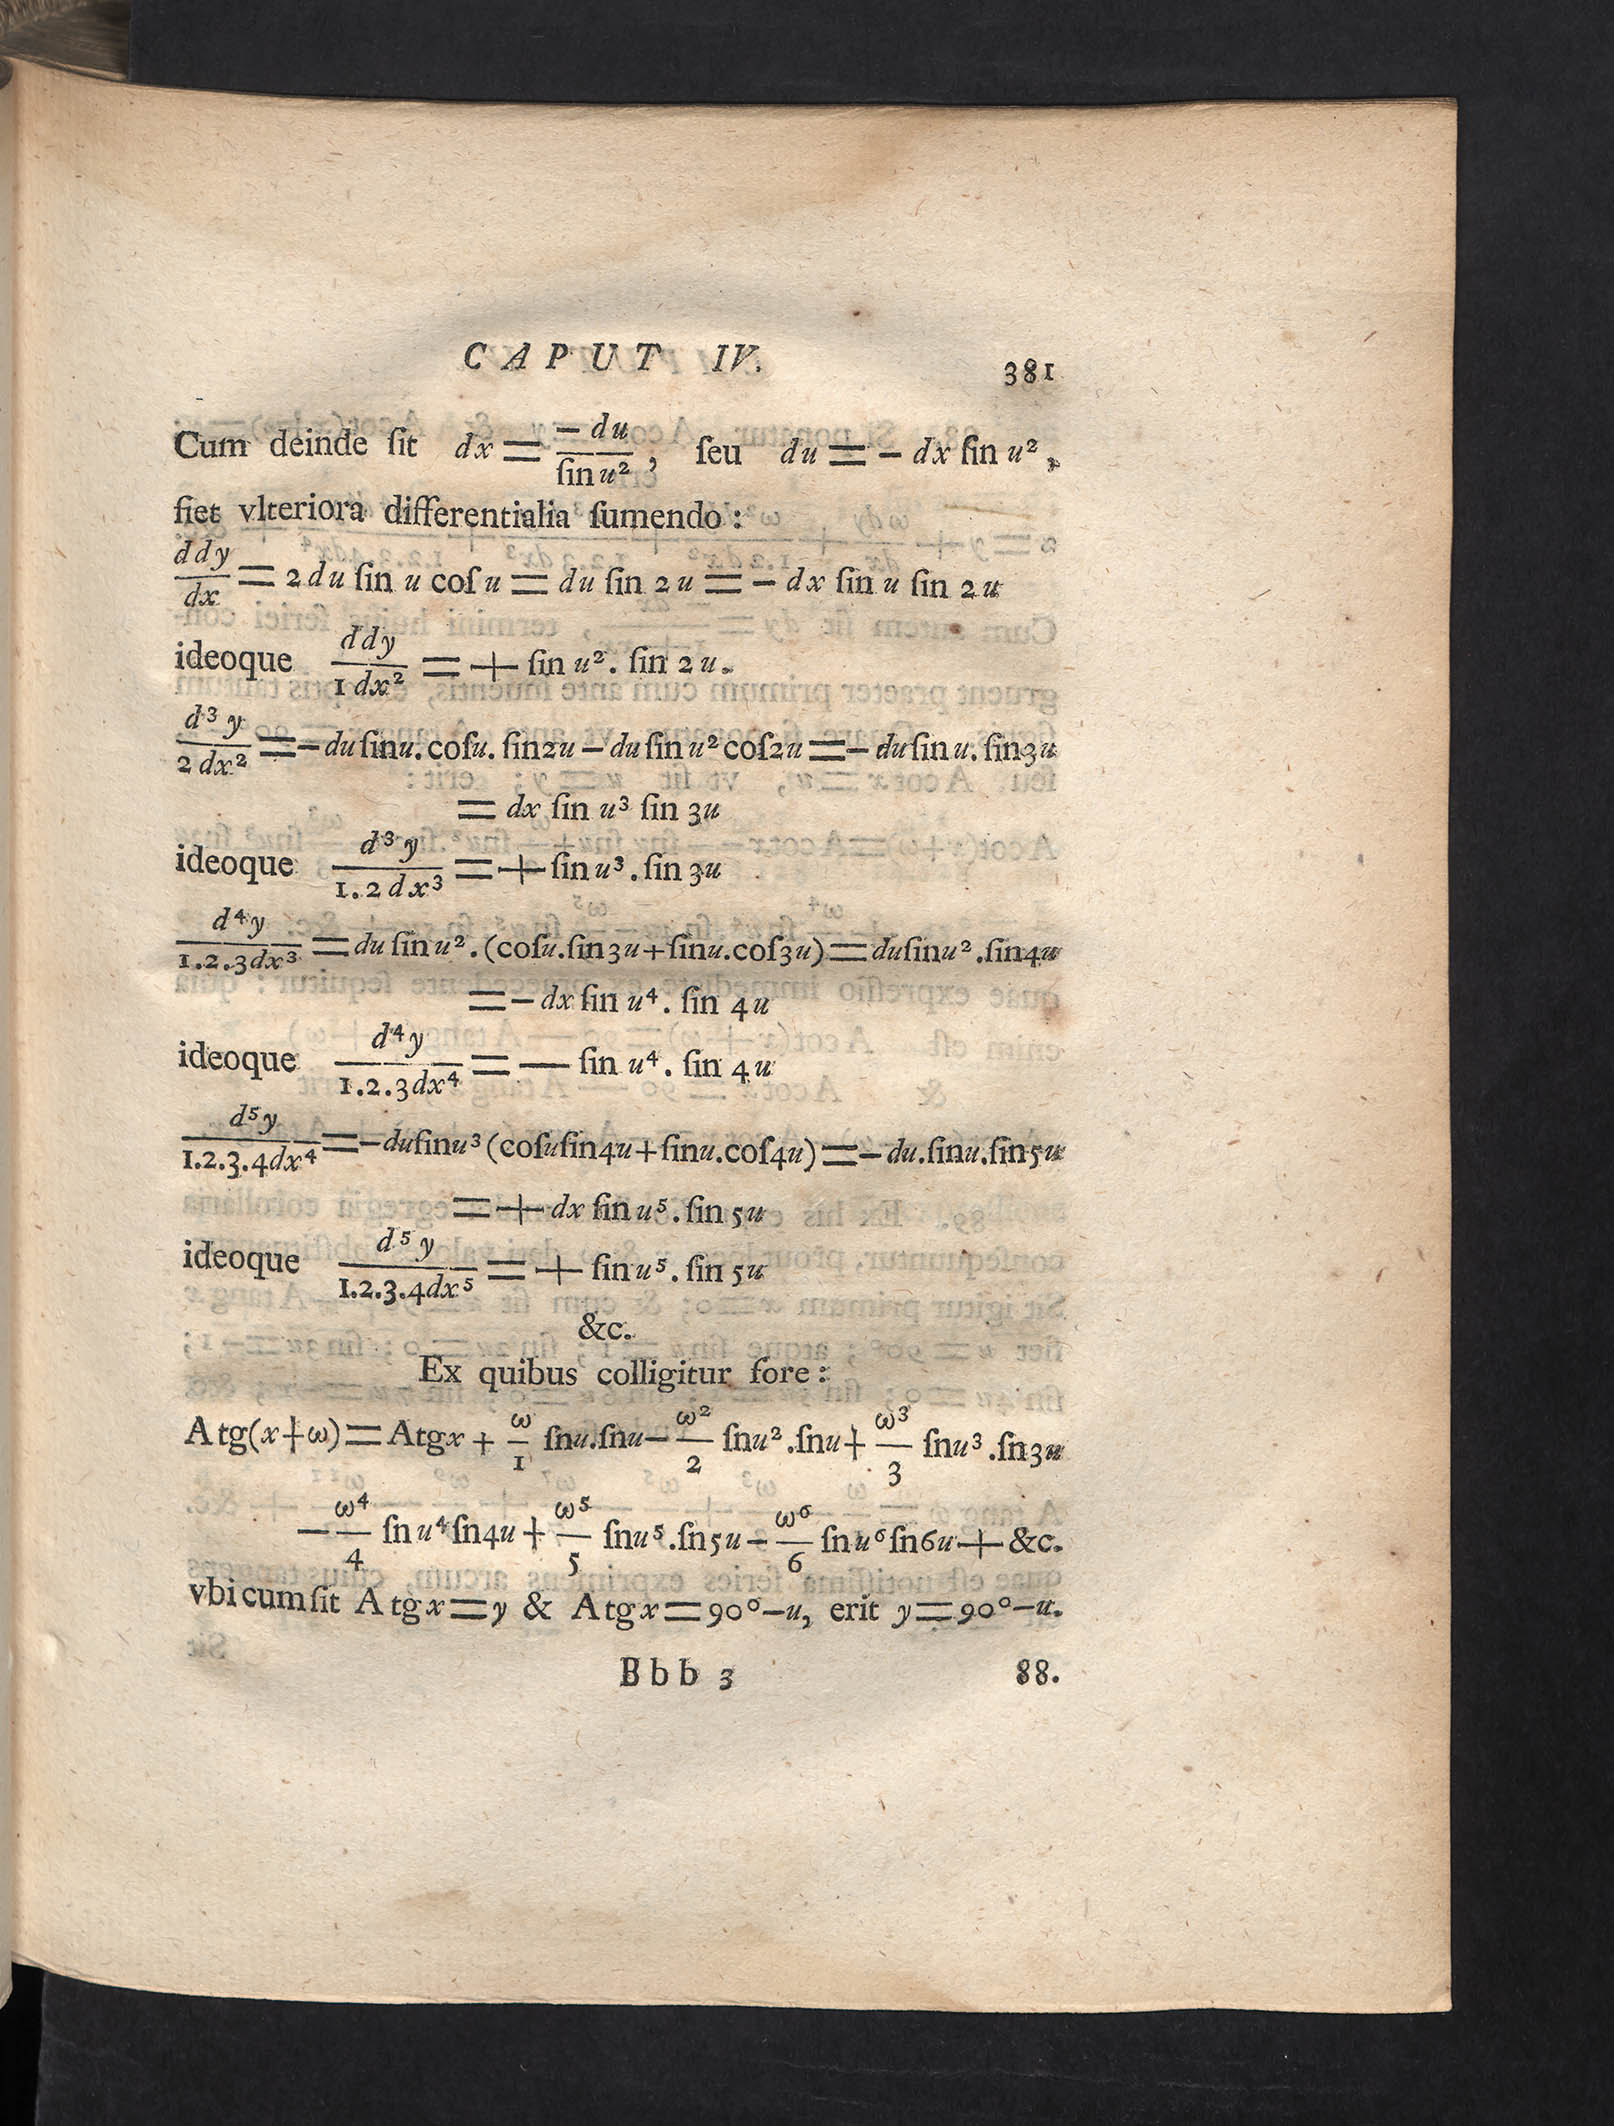 CAPUT IV. 381
Cum deinde ſit dx = −du/ſin u², ſeu du = − dx ſin u²,
fiet vlteriora differentialia ſumendo:
ddy/dx = 2 du ſin u coſ u = du ſin 2u = − dx ſin u ſin 2u
ideoque ddy/1dx² = + ſin u². ſin 2u.
d³y/2dx² = − du ſin u. coſu. ſin2u − du ſin u² coſ2u = − du ſin u. ſin3u
= dx ſin u³ ſin 3u
ideoque d³y/1.2dx³ = + ſin u³. ſin 3u
d⁴y/1.2.3dx³ = du ſin u². (coſu.ſin3u + ſinu.coſ3u) = du ſinu².ſin4u
= − dx ſin u⁴. ſin 4u
ideoque d⁴y/1.2.3dx⁴ = — ſin u⁴. ſin 4u
d⁵y/1.2.3.4dx⁴ = − du ſinu³ (coſu ſin4u + ſinu.coſ4u) = − du.ſinu.ſin5u
= + dx ſin u⁵. ſin 5u
ideoque d⁵y/1.2.3.4dx⁵ = + ſin u⁵. ſin 5u
&c.
Ex quibus colligitur fore:
A tg(x+ω) = A tg x + ω/1 ſnu.ſnu − ω²/2 ſnu².ſnu + ω³/3 ſnu³.ſn3u
− ω⁴/4 ſn u⁴ ſn4u + ω⁵/5 ſnu⁵.ſn5u − ω⁶/6 ſnu⁶ ſn6u + &c.
vbi cum ſit A tg x = y & A tg x = 90° − u, erit y = 90° − u.
Bbb 3 88.